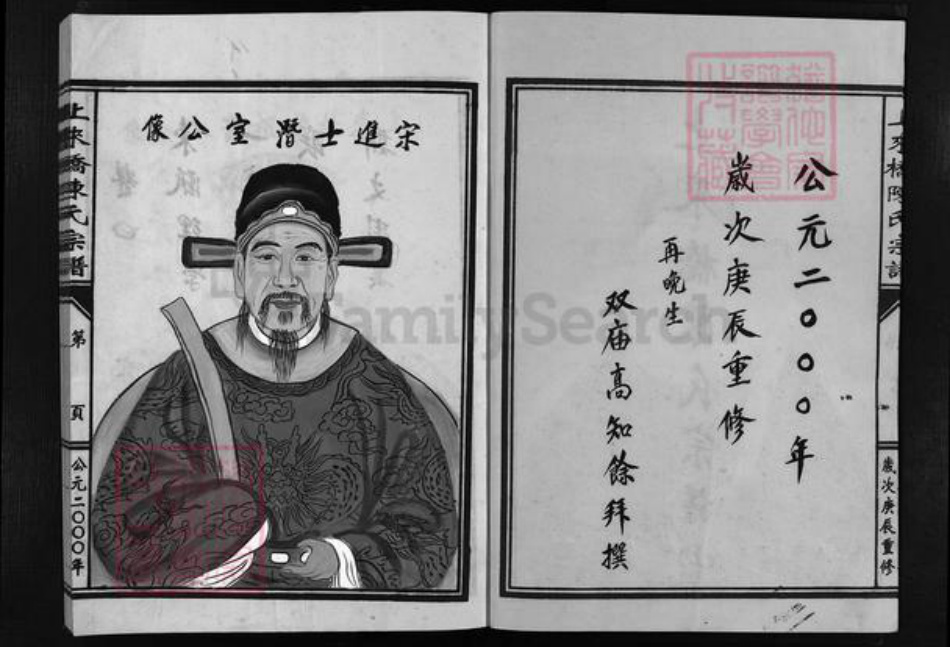 公元二〇〇〇年
歲次庚辰重修
再晚生
双庙高知餘拜撰
歲次庚辰重修
宋進士潛室公像
上來橋陳氏宗譜
第
頁
公元二〇〇〇年
FamilySearch